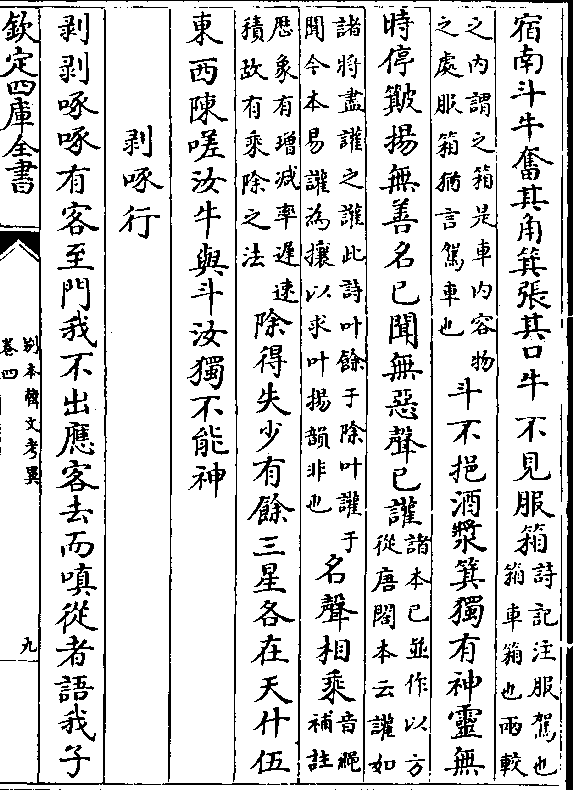 宿南斗牛奮其角箕張其口牛不見服箱詩記注服駕也
箱車箱也兩較
之內謂之箱是車內容物
之處服箱猶言駕車也斗不挹酒漿箕獨有神靈無
時停簸揚無善名已聞無惡聲已讙諸本已並作以方
從唐閣本云讙如
諸將盡讙之讙此詩叶餘于除叶讙于
聞今本易讙為攘以求叶揚韻非也名聲相乘音䋲
補註
厯象有增減率遲速
積故有乘除之法除得失少有餘三星各在天什伍
東西陳嗟汝牛與斗汝獨不能神
剥啄行
剥剥啄啄有客至門我不出應客去而嗔從者語我子
欽定四庫全書
别本韓文考異
卷四
九